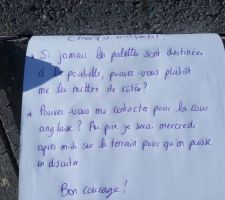 Si jamais les palettes sont destinées
à la poubelle, pouvez-vous plutôt
me les mettre de côté ?
* Pouvez-vous me contacter pour la cour
anglaise ? Au pire je serai mercredi
après-midi sur le terrain pour qu'on puisse
en discuter.
Bon courage !